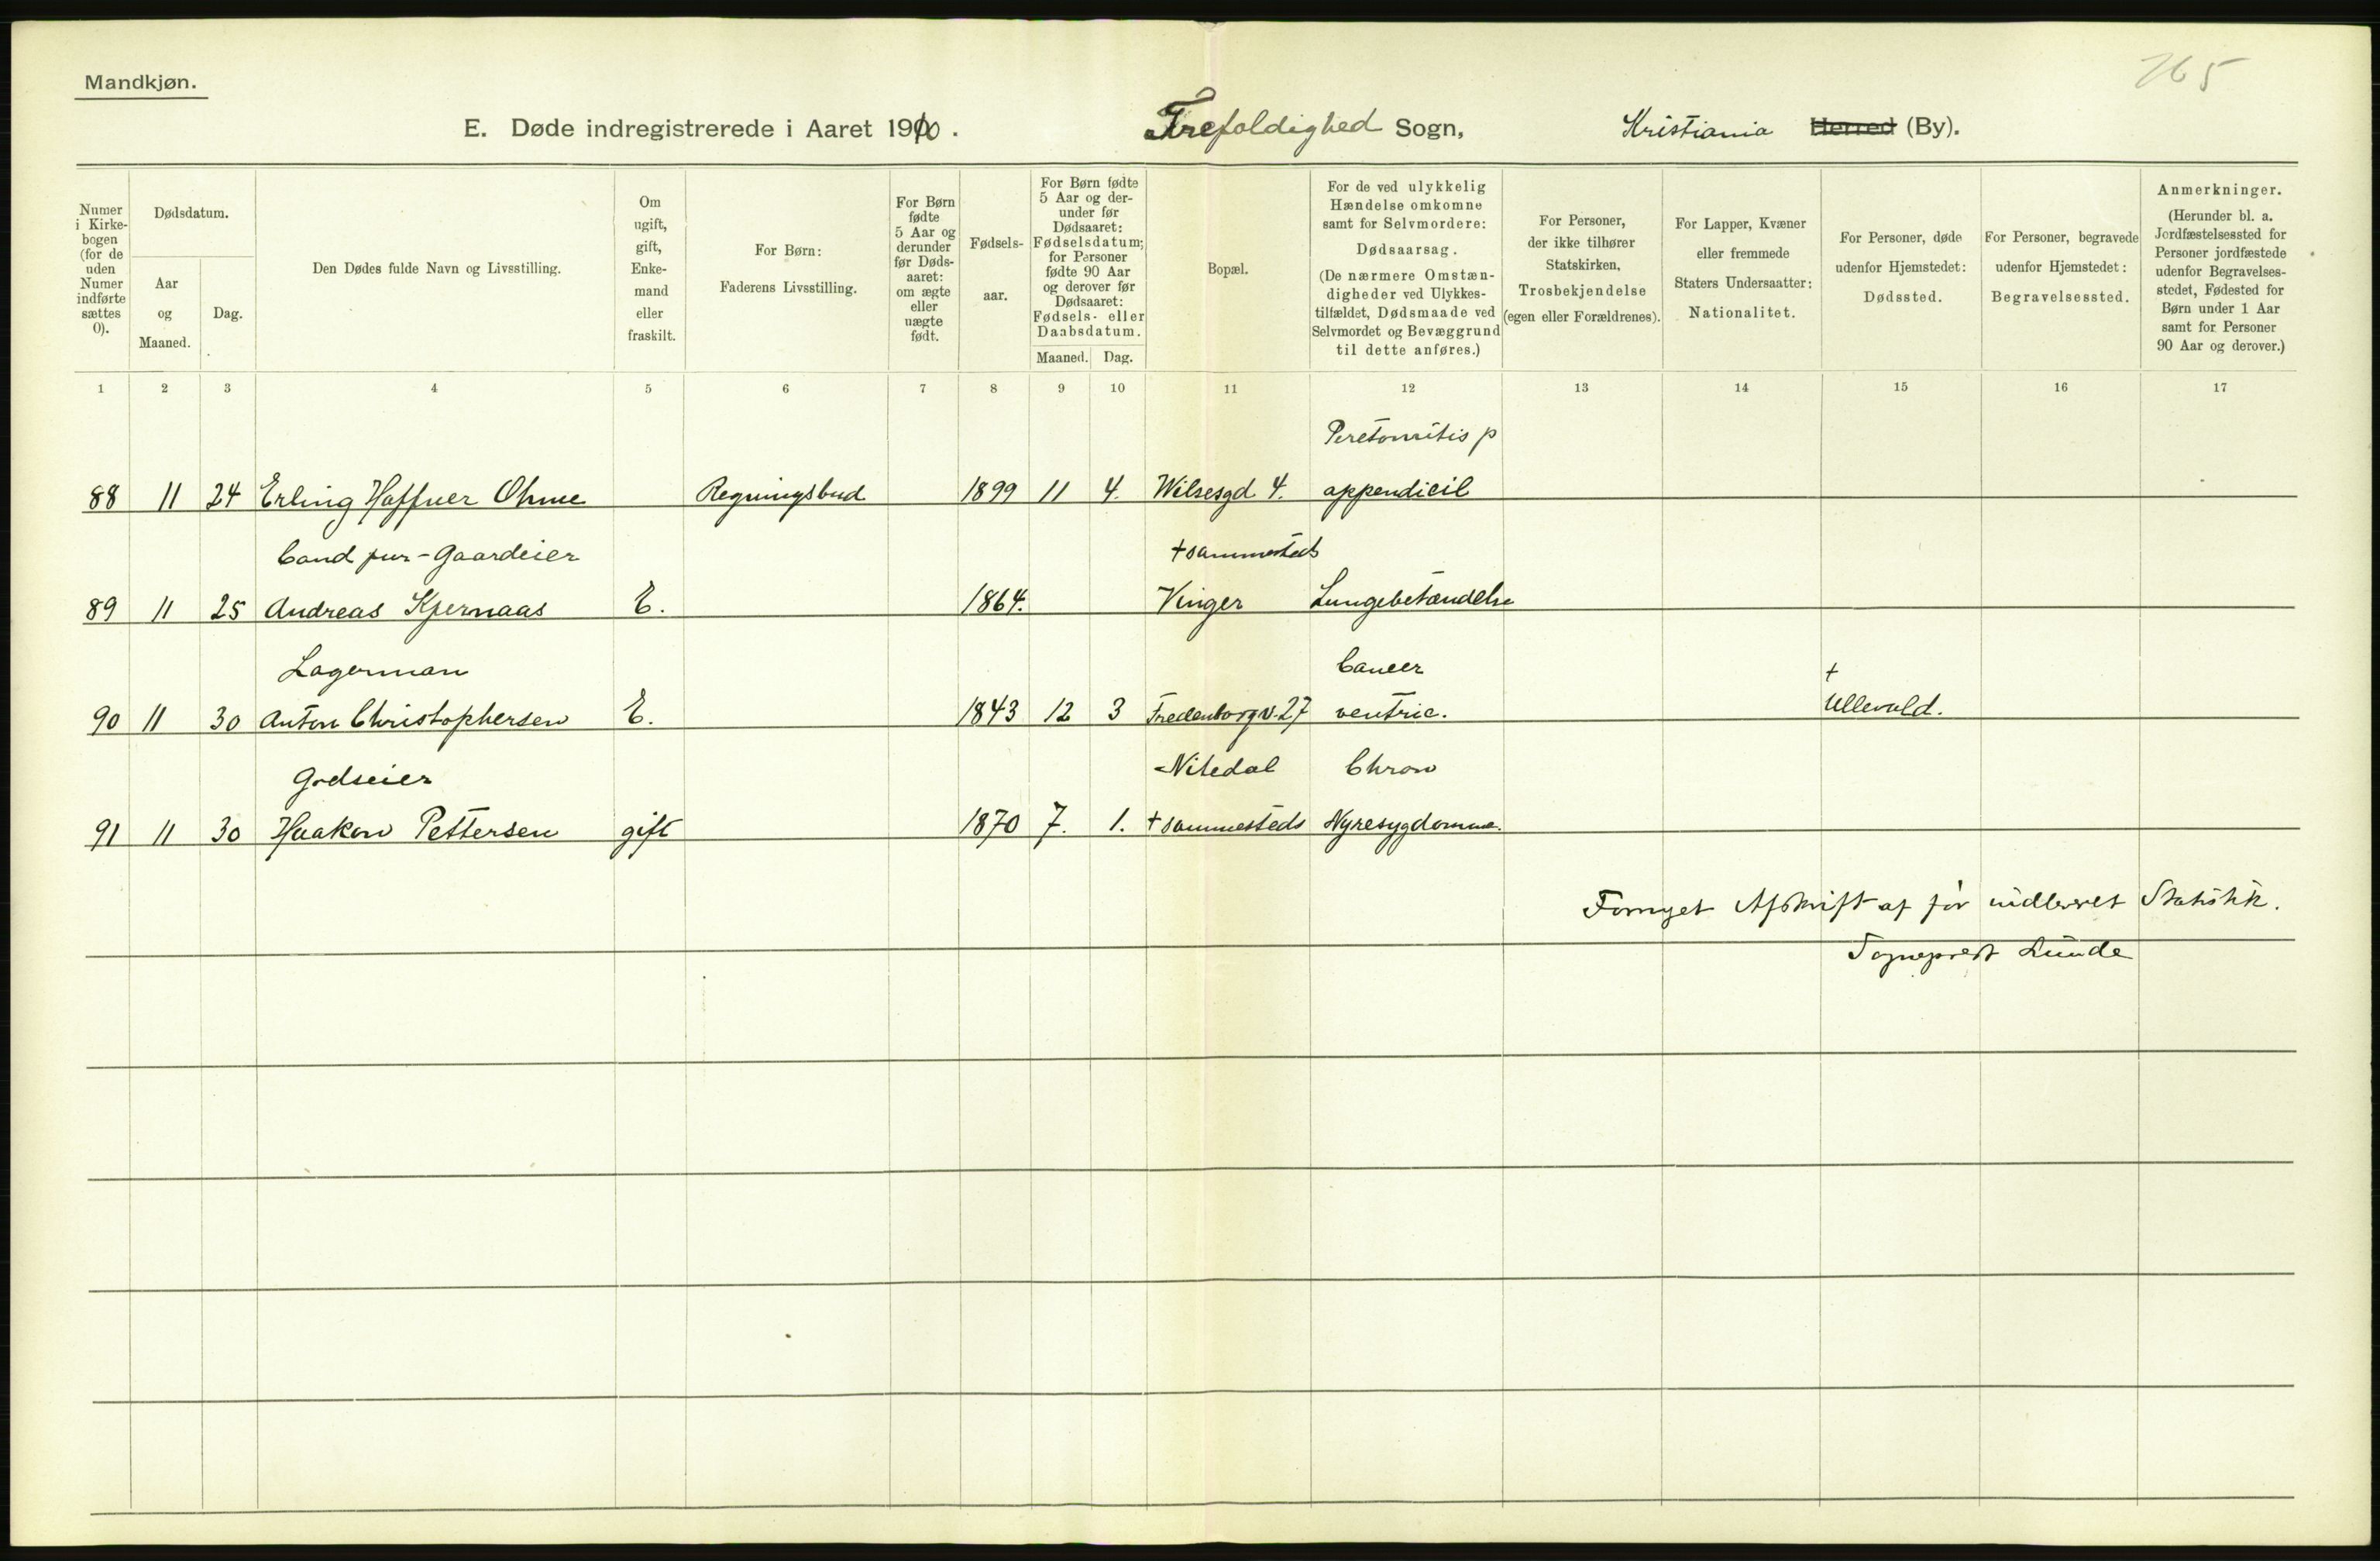 265
Mandkjøn.
E. Døde indregistrerede i Aaret 1910.
Trefoldighed Sogn,
Kristiania Herred (By).
Numer i Kirkebogen (for de uden Numer indførte sættes 0).
Dødsdatum.
Aar og Maaned.
Dag.
Den Dødes fulde Navn og Livsstilling.
Om ugift, gift, Enkemand eller fraskilt.
For Børn:
Faderens Livsstilling.
For Børn fødte 5 Aar og derunder før Dødsaaret: om ægte eller uægte født.
Fødselsaar.
For Børn fødte 5 Aar og derunder før Dødsaaret: Fødselsdatum; for Personer fødte 90 Aar og derover før Dødsaaret: Fødsels- eller Daabsdatum.
Maaned. Dag.
Bopæl.
For de ved ulykkelig Hændelse omkomne samt for Selvmordere:
Dødsaarsag.
(De nærmere Omstændigheder ved Ulykkestilfældet, Dødsmaade ved Selvmordet og Bevæggrund til dette anføres.)
For Personer, der ikke tilhører Statskirken, Trosbekjendelse (egen eller Forældrenes).
For Lapper, Kvæner eller fremmede Staters Undersaatter: Nationalitet.
For Personer, døde udenfor Hjemstedet: Dødssted.
For Personer, begravede udenfor Hjemstedet: Begravelsessted.
Anmerkninger.
(Herunder bl. a. Jordfæstelsessted for Personer jordfæstede udenfor Begravelsesstedet, Fødested for Børn under 1 Aar samt for Personer 90 Aar og derover.)
1 2 3 4 5 6 7 8 9 10 11 12 13 14 15 16 17
Peretonitis p
88 11 24 Erling Haffner Ohme Regningsbud 1899 11 4. Wilsesgd 4. appendicil
Cand jur - Gaardeier + sammesteds
89 11 25 Andreas Kjernaas E. 1864. Vinger Lungebetændelse
Lagerman Cancer +
90 11 30 Anton Christophersen E. 1843 12 3 Fredenborgv. 27 ventric. Ullevold.
Godseier Nitedal Chron
91 11 30 Haakon Pettersen gift 1870 7. 1. + sammesteds Nyresygdomme.
Fornyet Afskrift af før indleveret Statistik.
Sogneprest Lunde